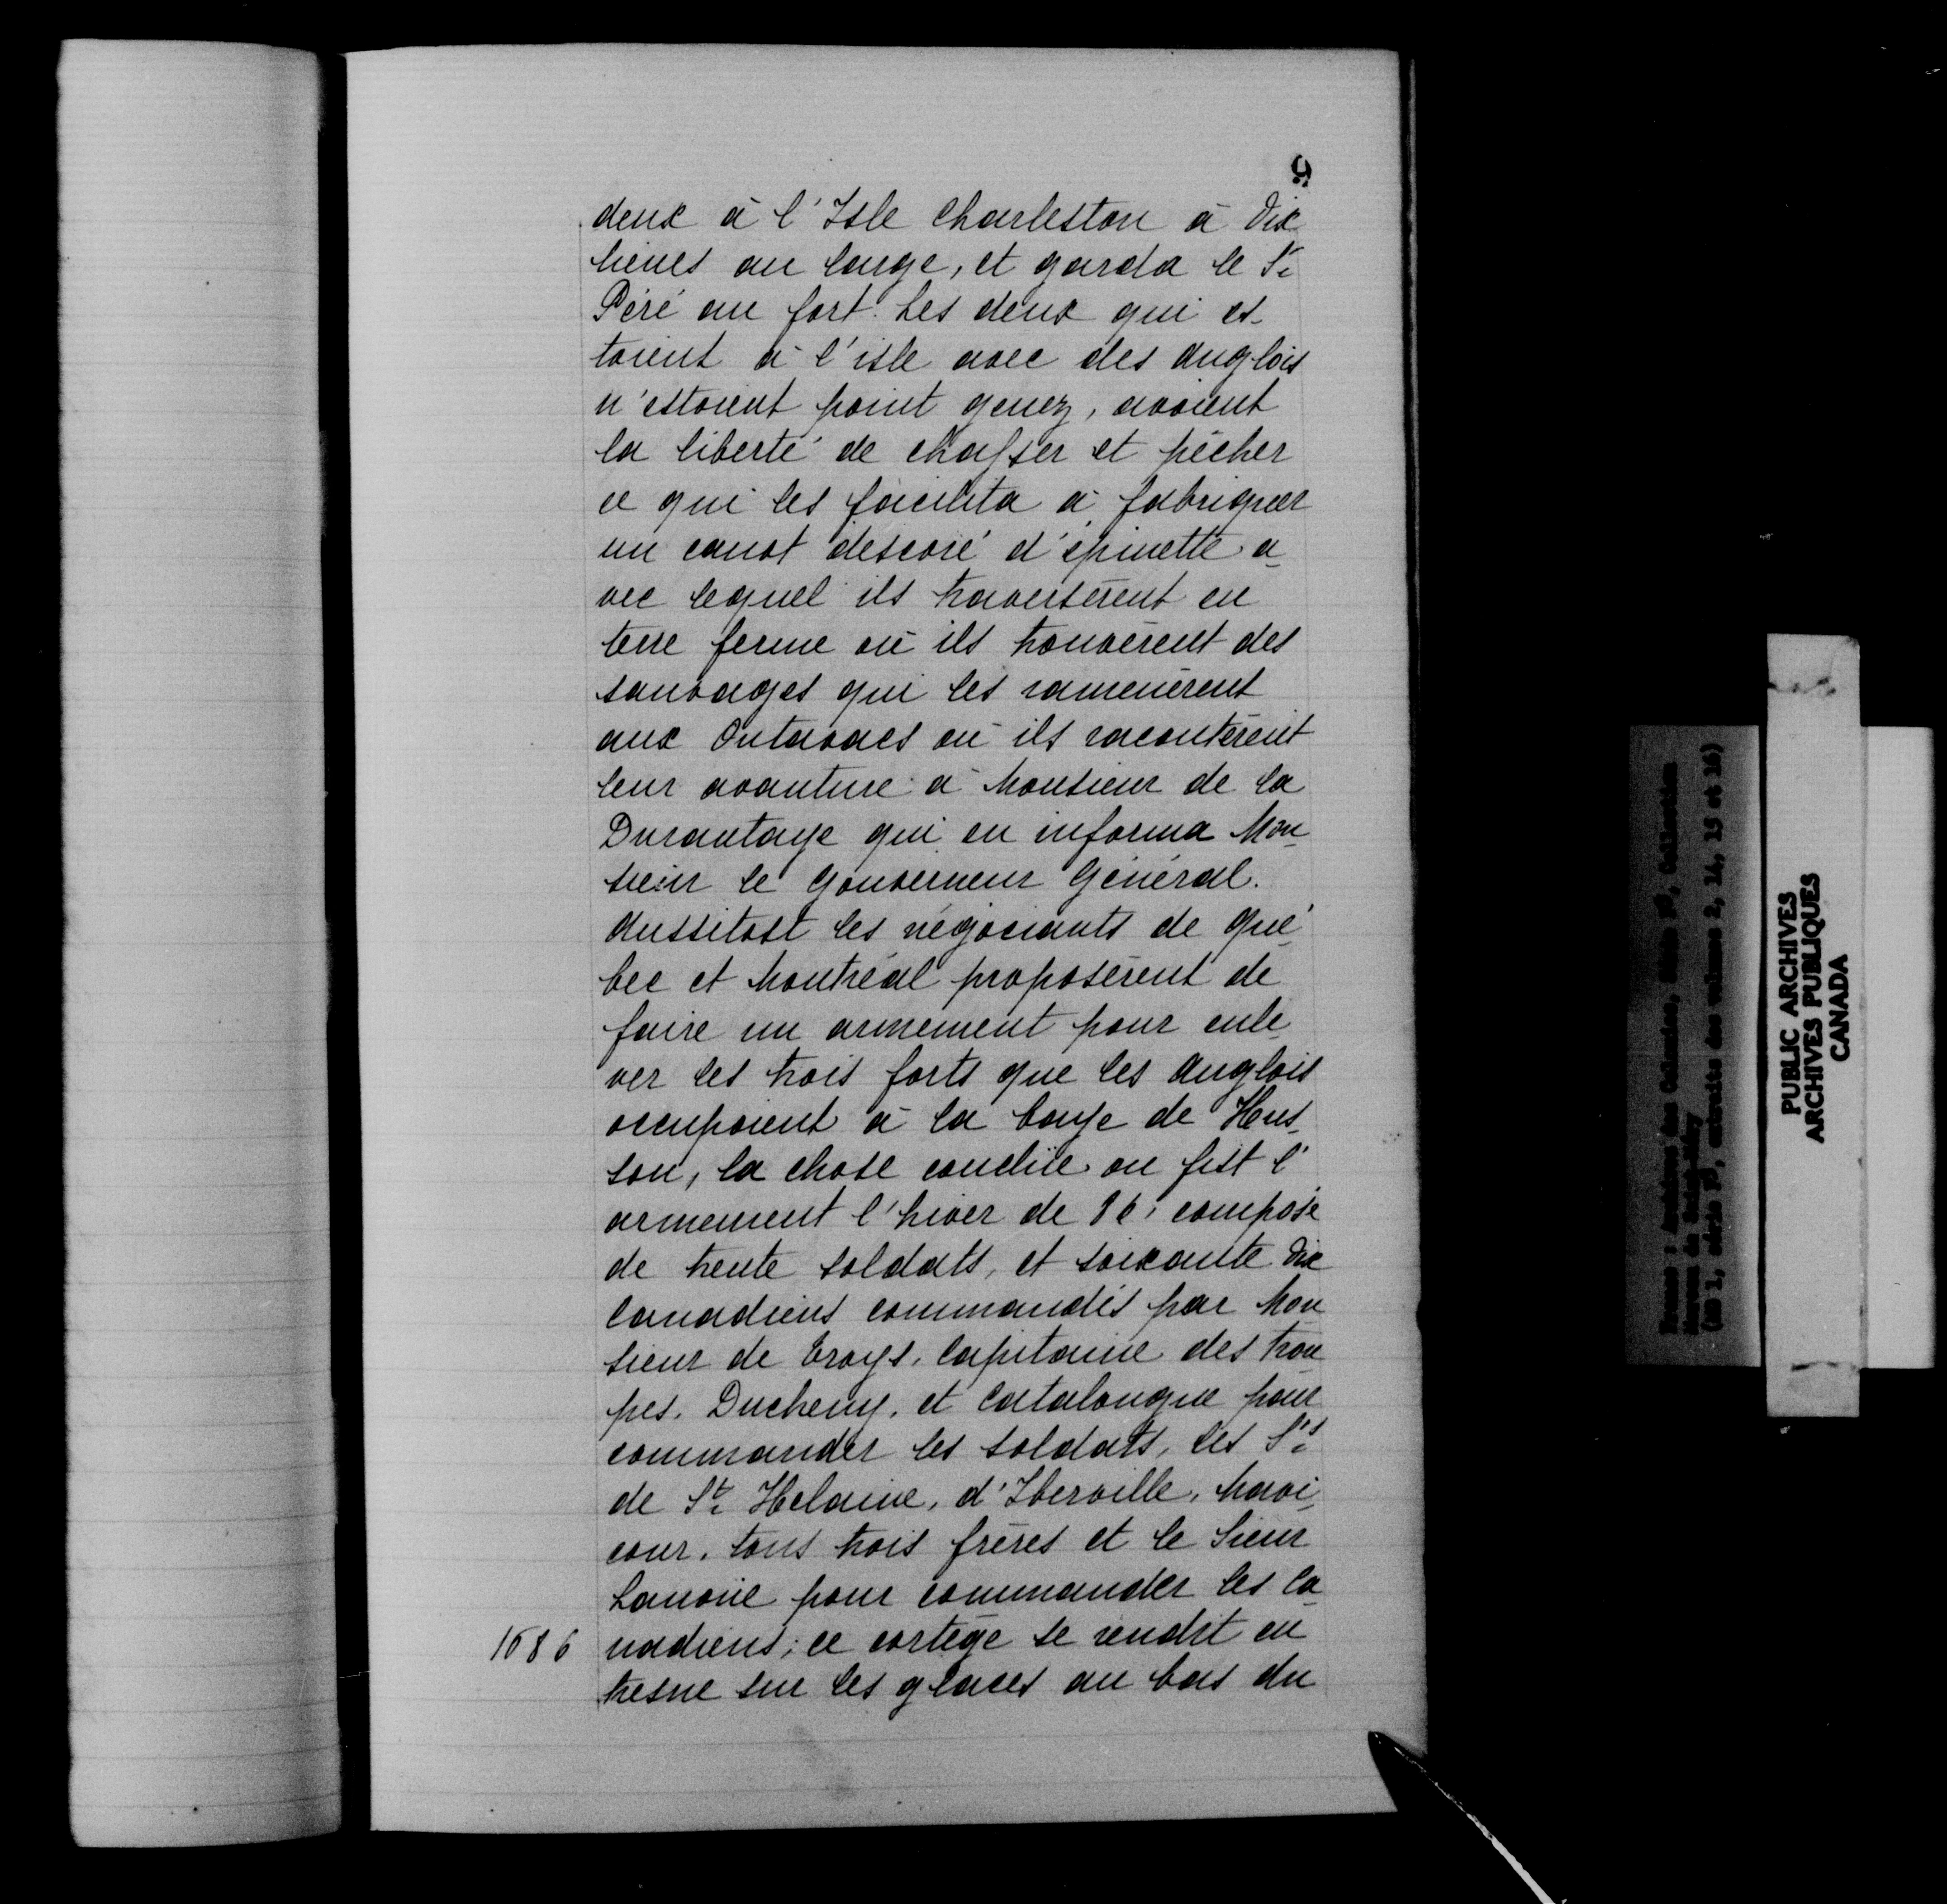 9
deux à l'Isle Charleston à Dix
lieues au large, et garda le Sr
Péré au fort. Les deux qui es-
toient à l'isle avec des Anglois
n'estoient point genez, avoient
la liberté de chasser et pêcher
ce qui les facilita à fabriquer
un canot descoré d'épinette a-
vec lequel ils traversèrent en
terre ferme où ils trouvèrent des
sauvages qui les ramenèrent
aux Outavacs où ils racontèrent
leur avanture à Monsieur de la
Durantaye qui en informa Mon-
sieur le Gouverneur Général.
Aussitost les négociants de Qué-
bec et Montréal proposèrent de
faire un armement pour enle-
ver les trois forts que les Anglois
occupoient à la baye de Hus-
son, la chose conclüe on fist l'
armement l'hiver de 86 composé
de trente soldats, et soixante Dix
Canadiens commandés par Mon
sieur de Troyes, Capitaine des trou
pes. Ducheny, et Catalongue pour
commander les soldats, les Srs
de Ste Helaine, d'Iberville, Mavi-
cour, tous trois frères et le Sieur
Lanoüe pour commander les Ca-
1686 nadiens; ce cortège se rendit en
tresne sur les glaces au bas du
PUBLIC ARCHIVES
ARCHIVES PUBLIQUES
CANADA
(MG 1, série F3, extraits des volumes 2, 14, 15 et 16)